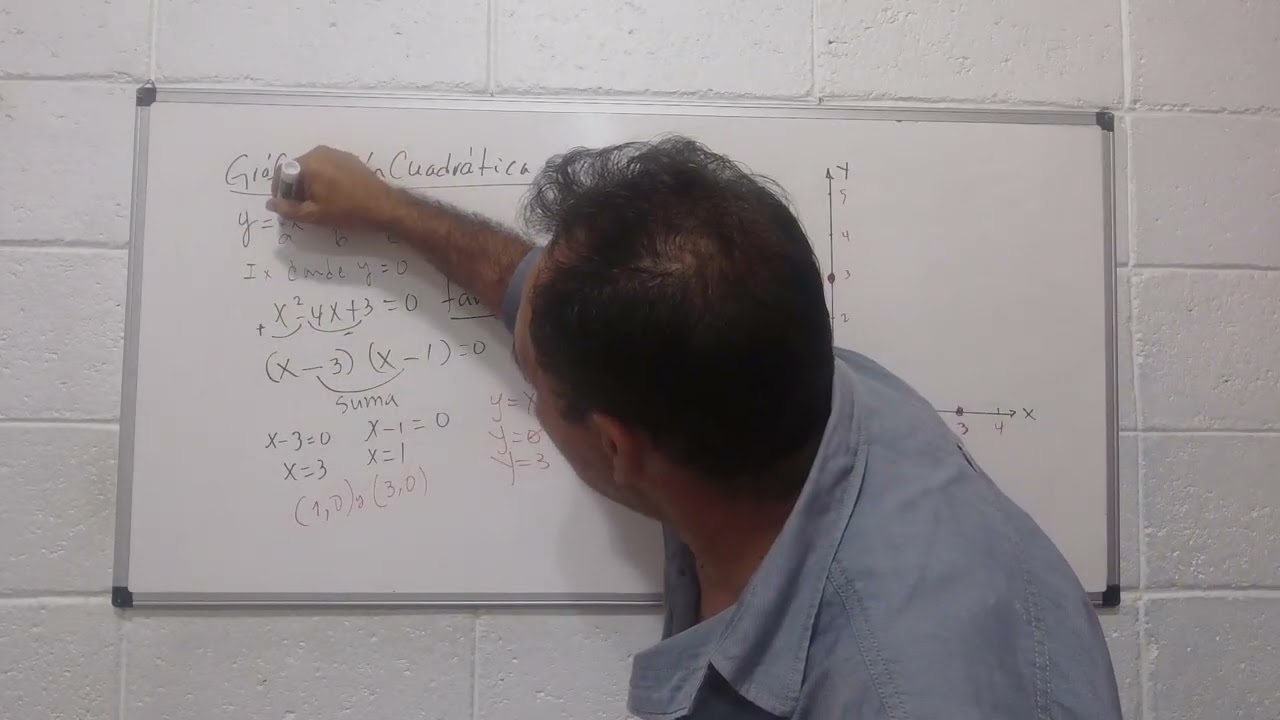 Cuadrática
y =
a b
Ix donde y = 0
x² - 4x + 3 = 0
+ -
(x - 3) (x - 1) = 0
suma
x - 3 = 0 x - 1 = 0
x = 3 x = 1
(1,0) y (3,0)
y = x
y = 0
y = 3
y
5
4
3
2
3 4 x